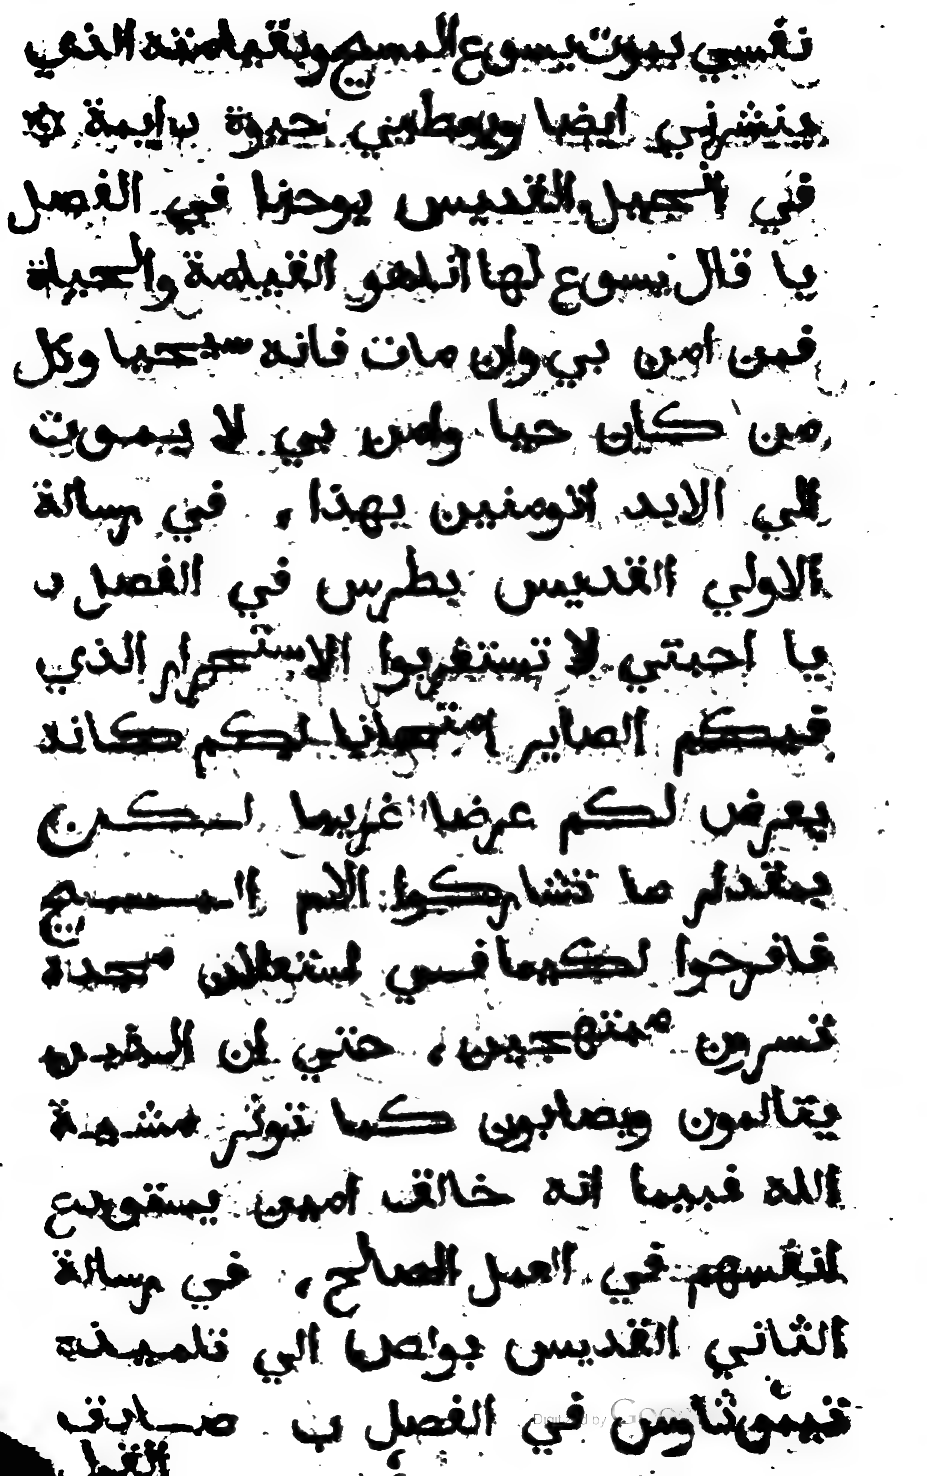 نفسي بموت يسوع المسيح وبقيامته الذي
ينشرني ايضا ويعطيني حيوة دايمة
في انجيل القديس يوحنا في الفصل
يا قال يسوع لها انا هو القيامة والحياة
فمن امن بي وان مات فانه سيحيا وكل
من كان حيا وامن بي لا يموت
الي الابد اتومنين بهذا، في رسالة
الاولي القديس بطرس في الفصل د
يا احبتي لا تستغربوا الاستحرار الذي
فيكم الصاير امتحانا لكم كانه
يعرض لكم عرضا غريبا لكن
بمقدار ما تشاركوا الام المسيح
فافرحوا لكيما في استعلان مجده
تسرون مبتهجين، حتي ان الذين
يتالمون ويصابون كما توثر مشية
الله فبيما انه خالق امين يستودع
انفسهم في العمل الصالح، في رسالة
الثاني القديس بولص الي تلميذه
تيموثاوس في الفصل ب صادف
القول